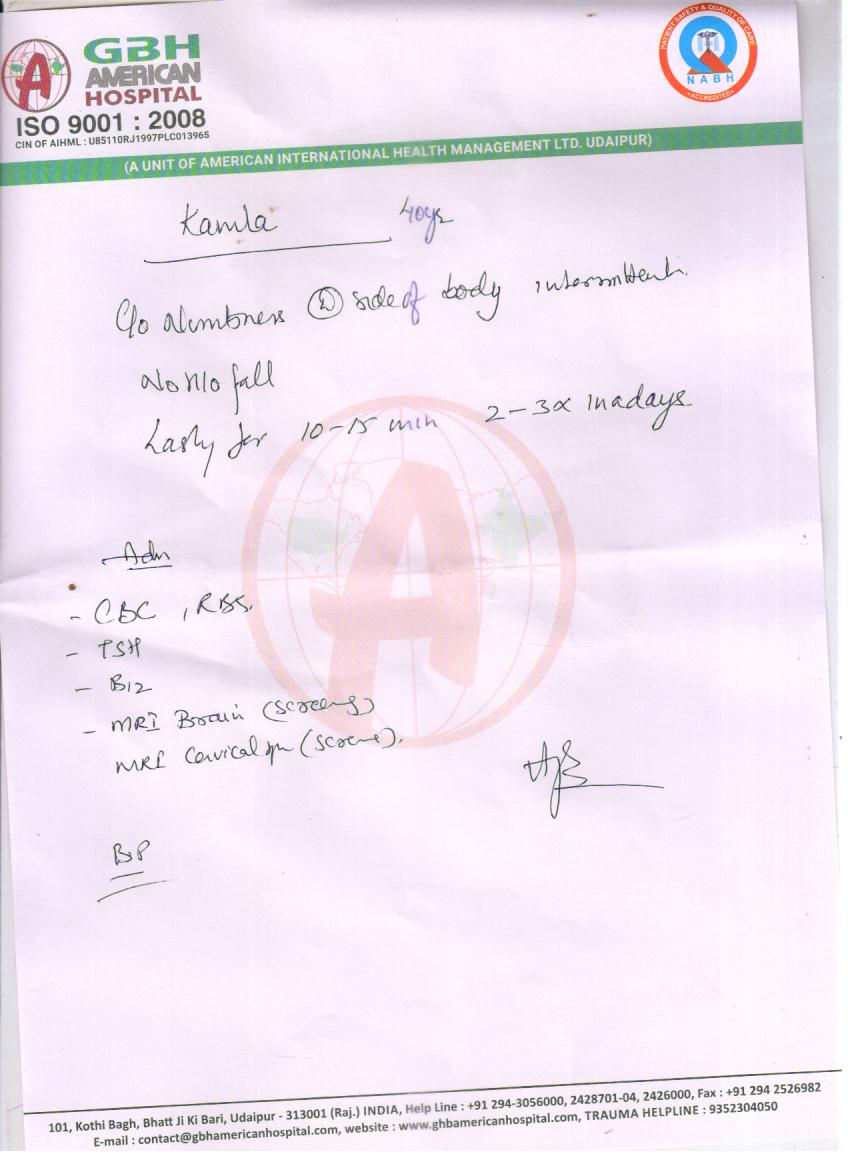 GBH
AMERICAN
HOSPITAL
ISO 9001 : 2008
CIN OF AIHML : U85110RJ1997PLC013965
PATIENT SAFETY & QUALITY OF CARE
NABH
•ACCREDITED•
(A UNIT OF AMERICAN INTERNATIONAL HEALTH MANAGEMENT LTD. UDAIPUR)
Kamla 40yr
C/o Numbness side of body intermittent.
No h/o fall
Lasting for 10-15 min 2-3x in a days
Adv
- CBC, RBS.
- TSH
- B12
- MRI Brain (screening)
MRI Cervical spine (screening).
BP
101, Kothi Bagh, Bhatt Ji Ki Bari, Udaipur - 313001 (Raj.) INDIA, Help Line : +91 294-3056000, 2428701-04, 2426000, Fax : +91 294 2526982
E-mail : contact@gbhamericanhospital.com, website : www.ghbamericanhospital.com, TRAUMA HELPLINE : 9352304050